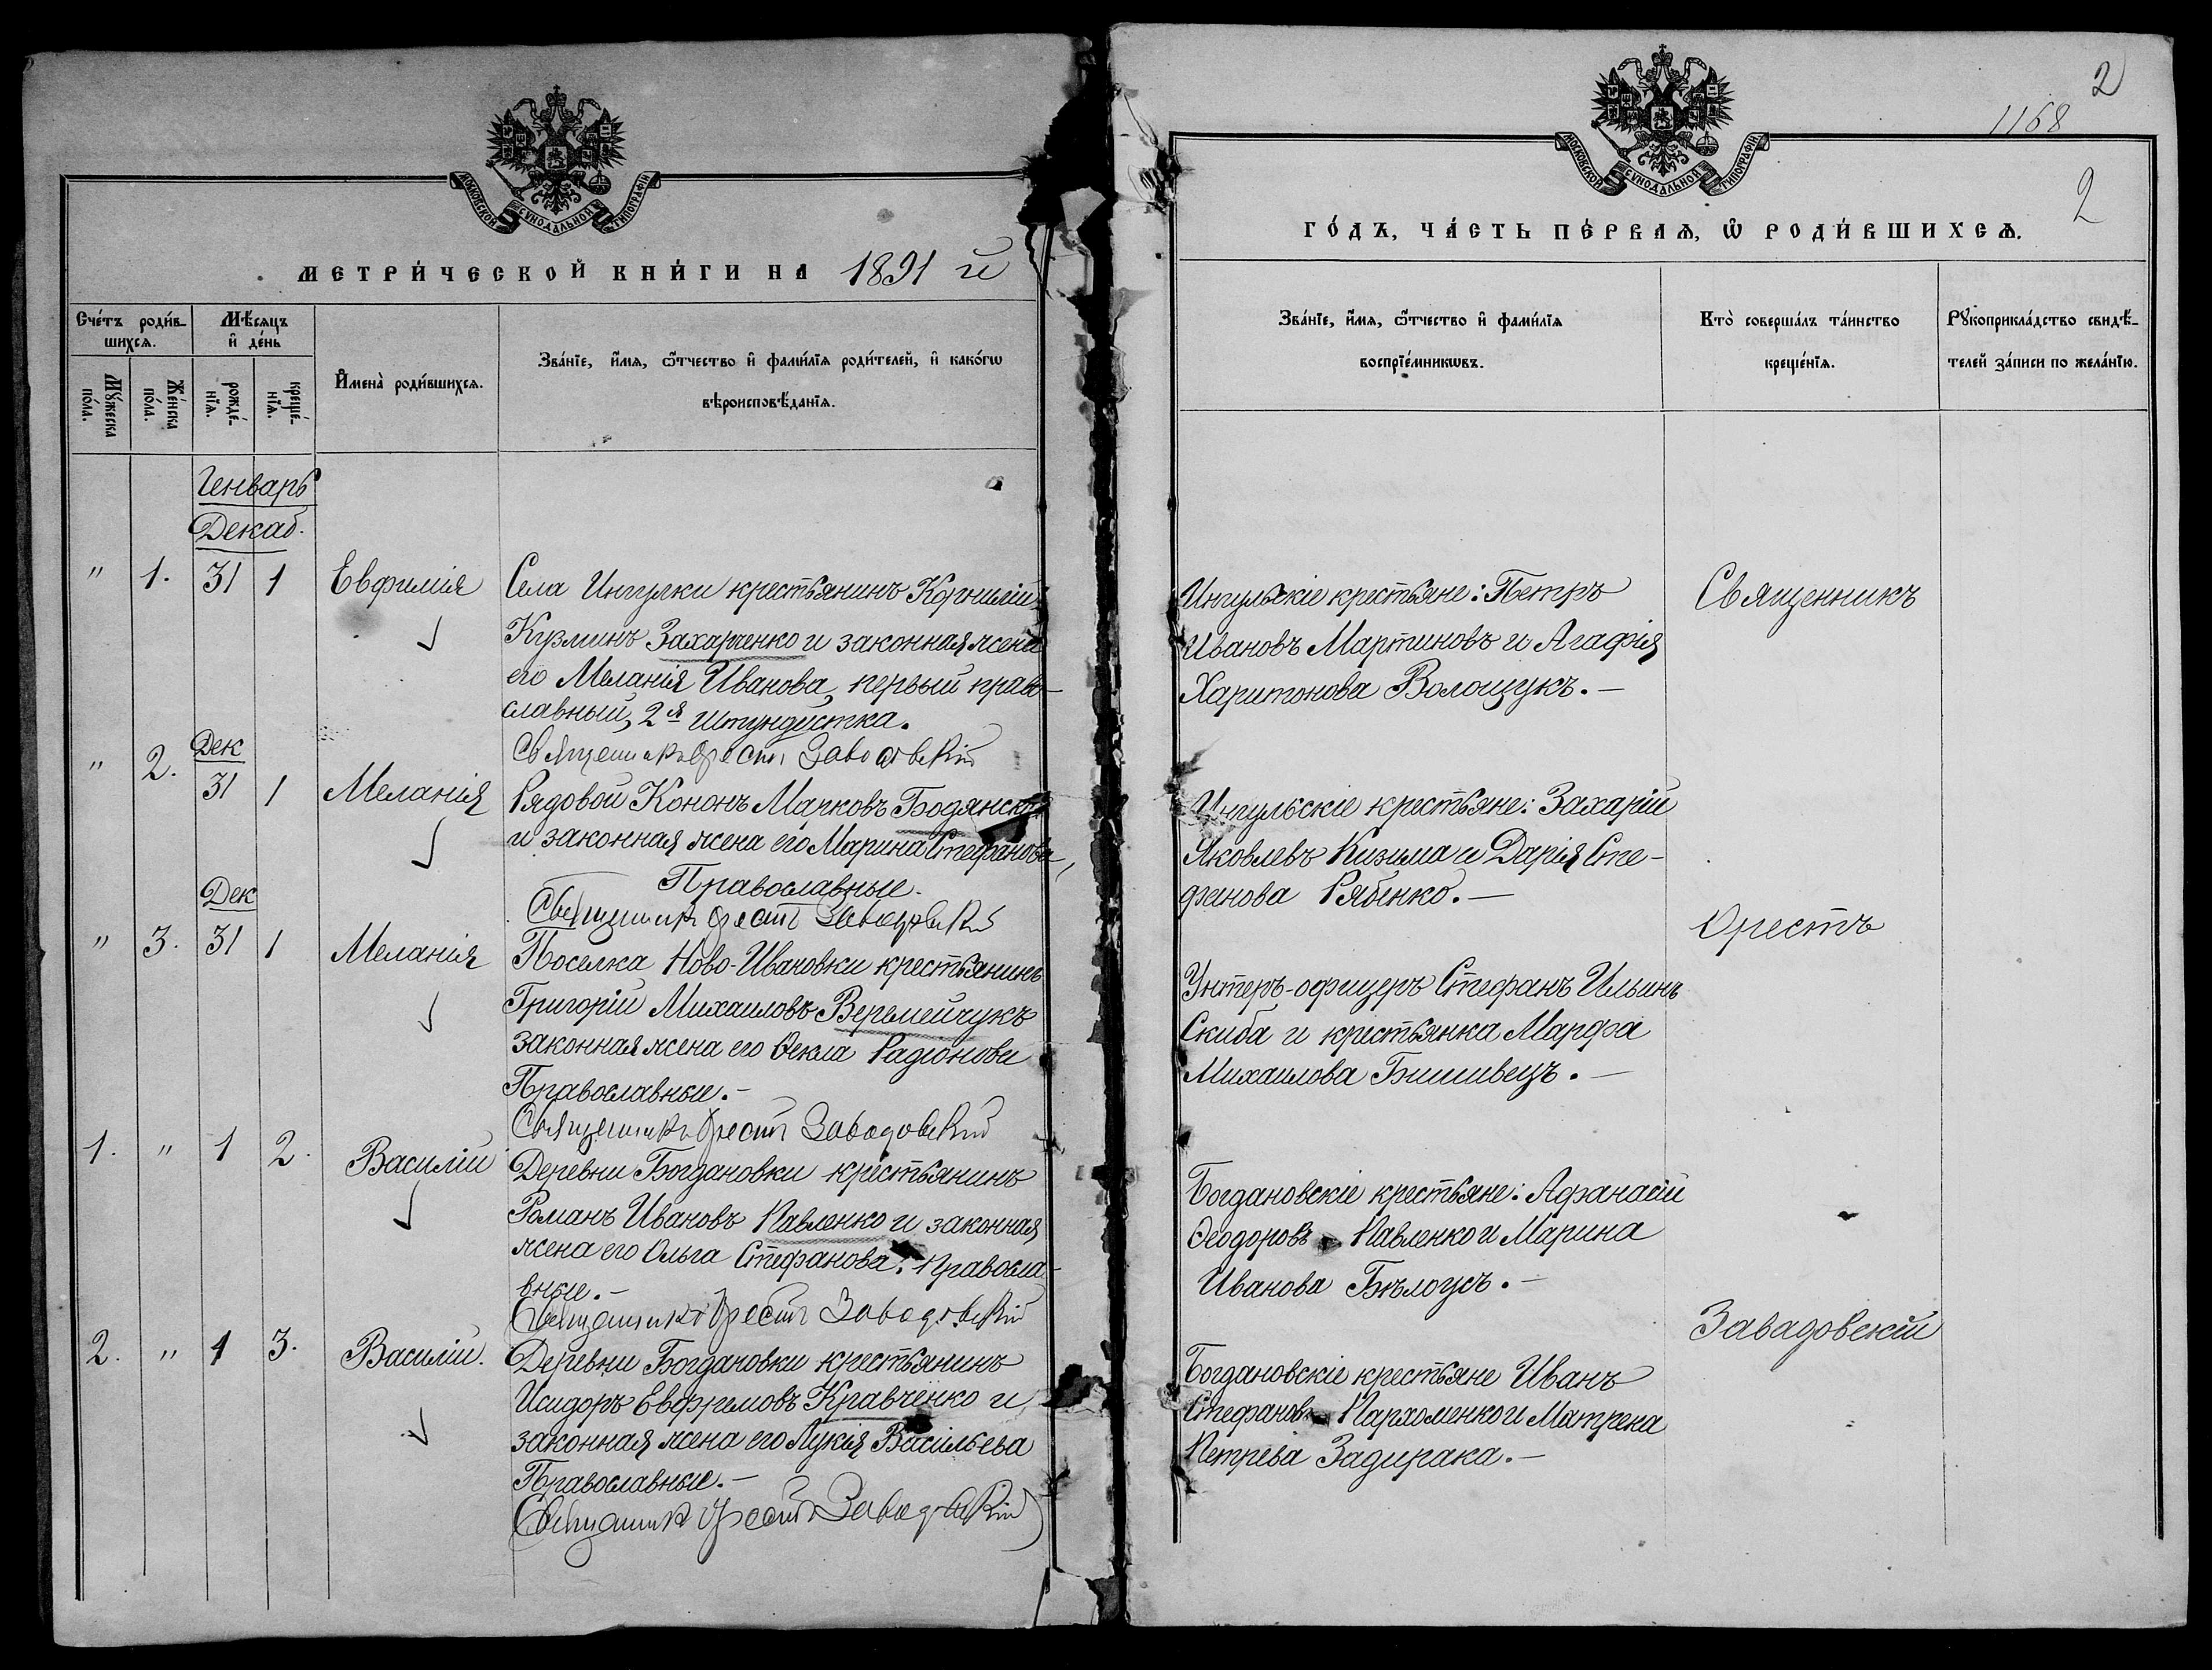 МОСКОВСКОЙ СѴНОДАЛЬНОЙ ТИПОГРАФІИ
МЕТРИ́ЧЕСКОЙ КНИ́ГИ НА 1891 й
Сче́тъ роди́вшихсѧ.
Мꙋ́жеска по́ла.
Же́нска по́ла.
Мѣ́сѧцъ и҆ де́нь
рожде́нїѧ.
креще́нїѧ.
И҆мена̀ роди́вшихсѧ.
Зва́нїе, и҆́мѧ, ѻ҆́тчество и҆ фами́лїѧ роди́телей, и҆ како́гѡ
вѣроисповѣ́данїѧ.
Генварь
Декаб.
" 1. 31 1 Евфимія
Села Ингулки крестьянинъ Корнилій
Кузминъ Захарченко и законная жена
его Меланія Иванова, первый право-
славный, 2я штундистка.
Священникъ Орестъ Завадовскій
Дек
" 2. 31 1 Меланія
Рядовой Кононъ Марковъ Бодянскій
и законная жена его Марина Стефанова,
Православные.
Священникъ Орестъ Завадовскій
Дек
" 3. 31 1 Меланія
Поселка Ново-Ивановки крестьянинъ
Григорій Михаиловъ Веремейчукъ
законная жена его Ѳекла Радіонова
Православные.-
Священникъ Орестъ Завадовскій
1. " 1 2. Василій
Деревни Богдановки крестьянинъ
Романъ Ивановъ Павленко и законная
жена его Ольга Стефанова: Правосла-
вные.-
Священникъ Орестъ Завадовскій
2. " 1 3. Василій.
Деревни Богдановки крестьянинъ
Исидоръ Евфремовъ Кравченко и
законная жена его Лукія Васильева
Православные.-
Священникъ Орестъ Завадовскій
2
1168
2
МОСКОВСКОЙ СѴНОДАЛЬНОЙ ТИПОГРАФІИ
ГО́ДЪ, ЧА́СТЬ ПЕ́РВАѦ, Ѡ҆ РОДИ́ВШИХСѦ.
Зва́нїе, и҆́мѧ, ѻ҆́тчество и҆ фами́лїѧ
воспрїе́мникѡвъ.
Кто̀ соверша́лъ та́инство
креще́нїѧ.
Рꙋкоприкла́дство свидѣ́-
телей за́писи по жела́нїю.
Ингульскіе крестьяне: Петръ
Ивановъ Мартиновъ и Агафія
Харитонова Волощукъ.-
Ингульскіе крестьяне: Захарій
Яковлевъ Кизима и Дарія Сте-
фанова Рябенко.-
Унтеръ-офицеръ Стефанъ Ильинъ
Скиба и крестьянка Марфа
Михаилова Бишивецъ.-
Богдановскіе крестьяне: Афанасій
Ѳеодоровъ Павленко и Марина
Иванова Бѣлоусъ.-
Богдановскіе крестьяне Иванъ
Стефановъ Пархоменко и Матрена
Петрева Задирака.-
Священникъ
Орестъ
Завадовскій